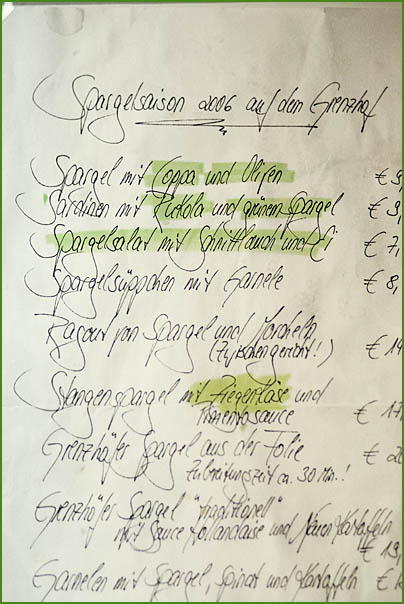 Spargelsaison 2006 auf dem Grenzhof
Spargel mit Coppa und Oliven € 9,
Sardinen mit Rukola und grünem Spargel € 9,
Spargelsalat mit Schnittlauch und Ei € 7,
Spargelsüppchen mit Garnele € 8,
Ragout von Spargel und Morcheln
(Zwischengericht!) € 14
Stangenspargel mit Ziegenkäse und
Pimentosauce € 17
Grenzhöfer Spargel aus der Folie € 20
Zubereitungszeit ca. 30 Min.!
Grenzhöfer Spargel "traditionell"
mit Sauce Hollandaise und Neuen Kartoffeln
€ 19,
Garnelen mit Spargel, Spinat und Kartoffeln €